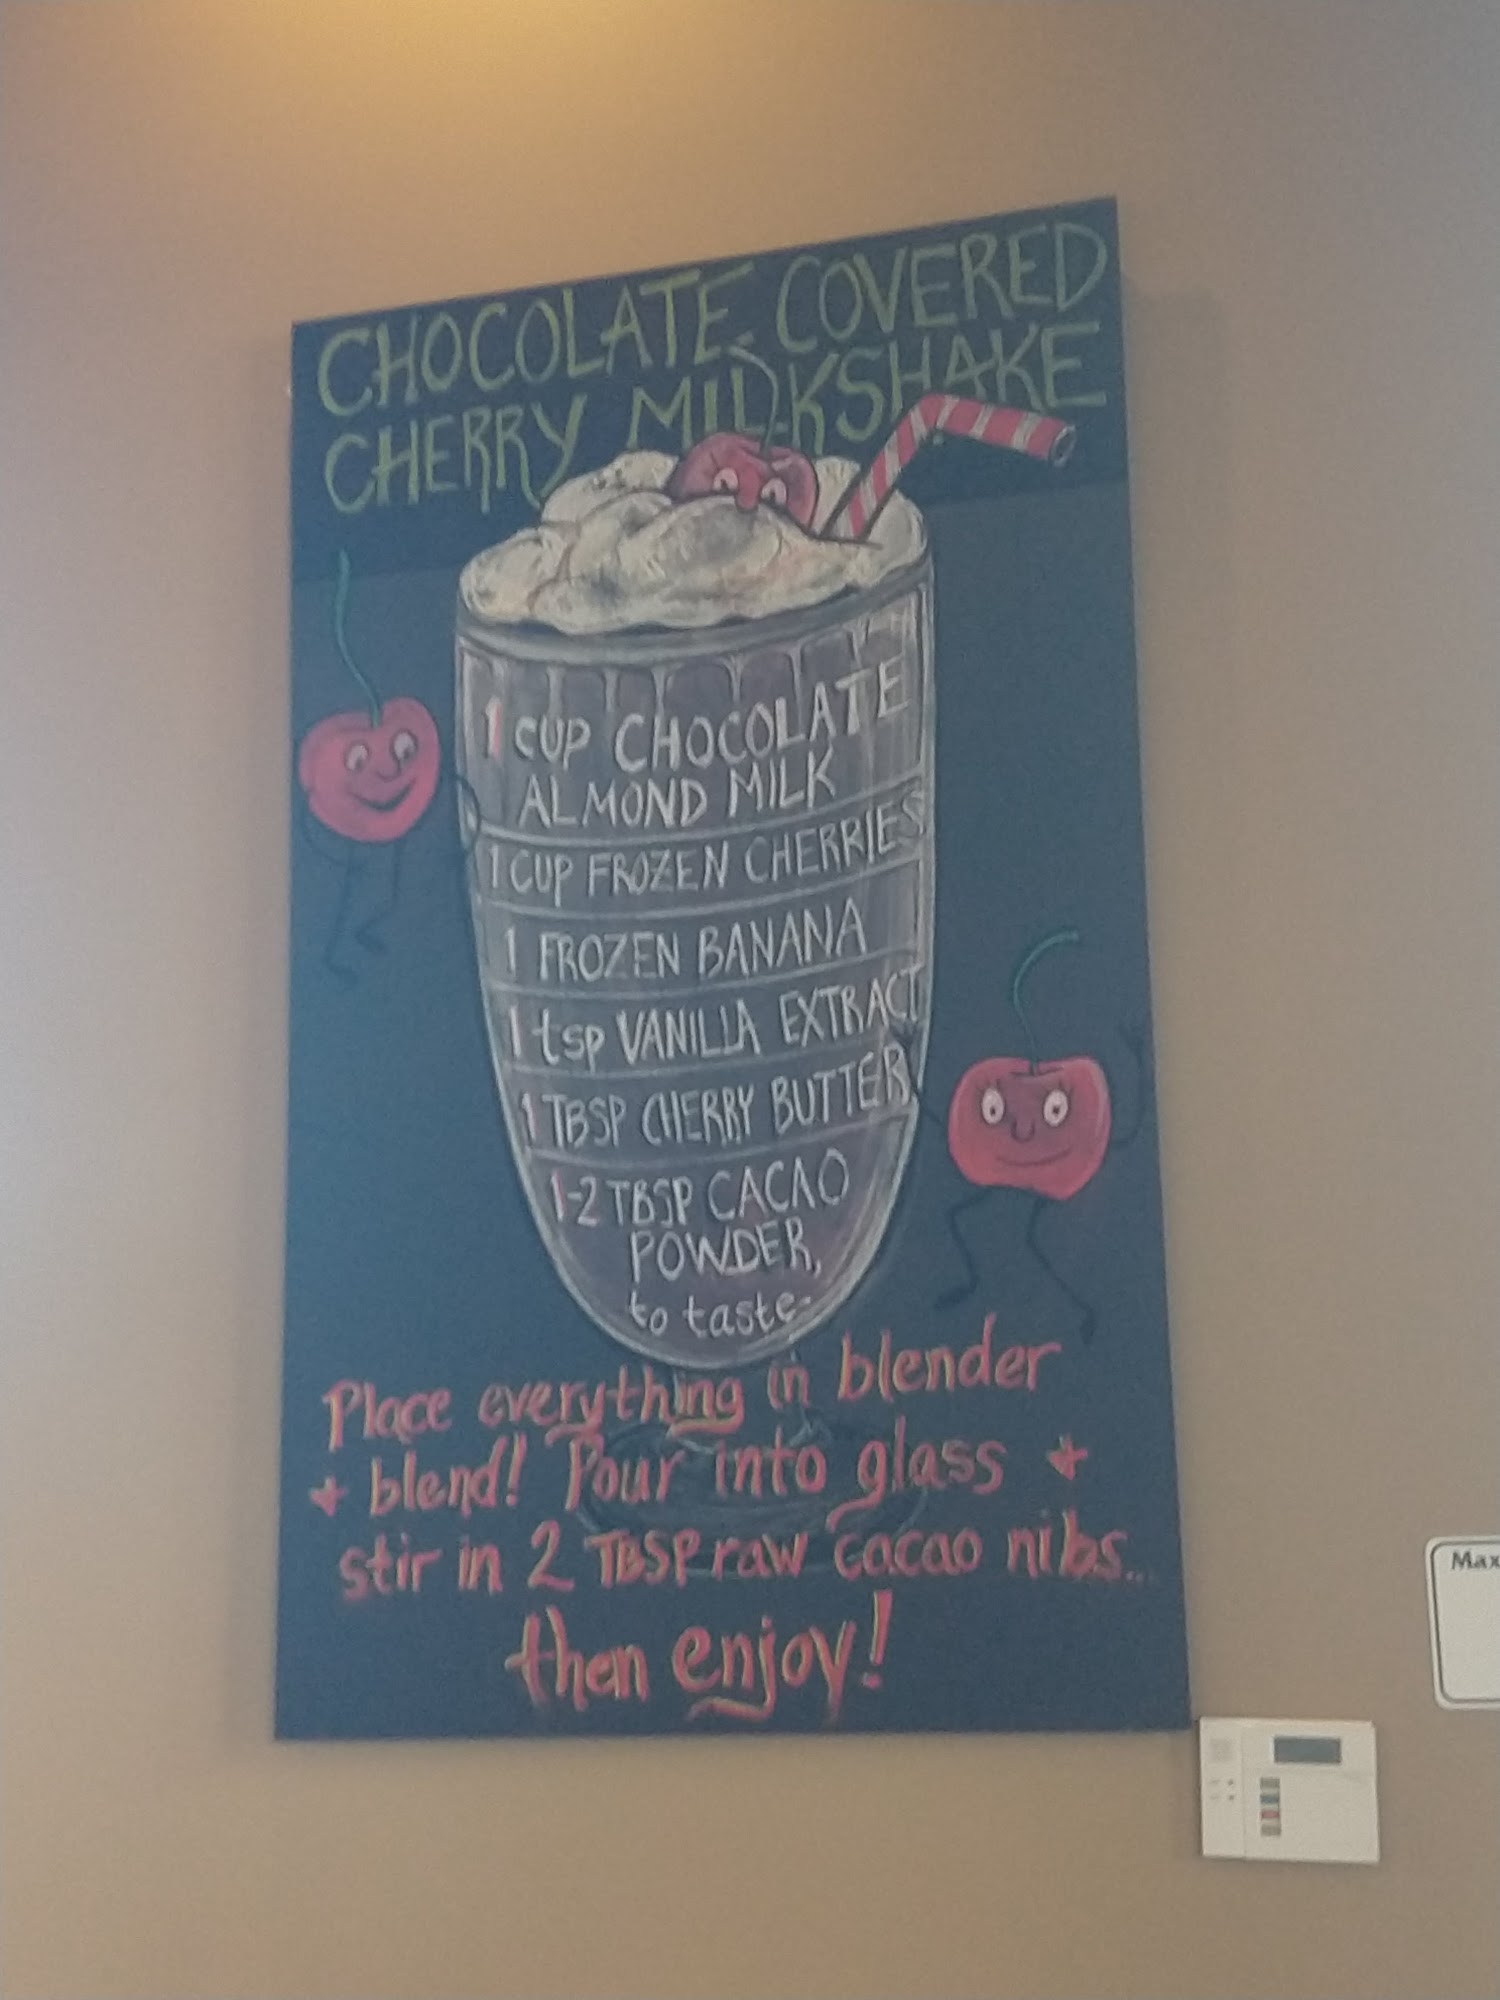 CHOCOLATE COVERED
CHERRY MILKSHAKE
1 CUP CHOCOLATE
ALMOND MILK
1 CUP FROZEN CHERRIES
1 FROZEN BANANA
1 tsp VANILLA EXTRACT
1 TBSP CHERRY BUTTER
1-2 TBSP CACAO
POWDER,
to taste-
Place everything in blender
+ blend! Pour into glass +
stir in 2 TBSP raw cacao nibs...
then enjoy!
Max